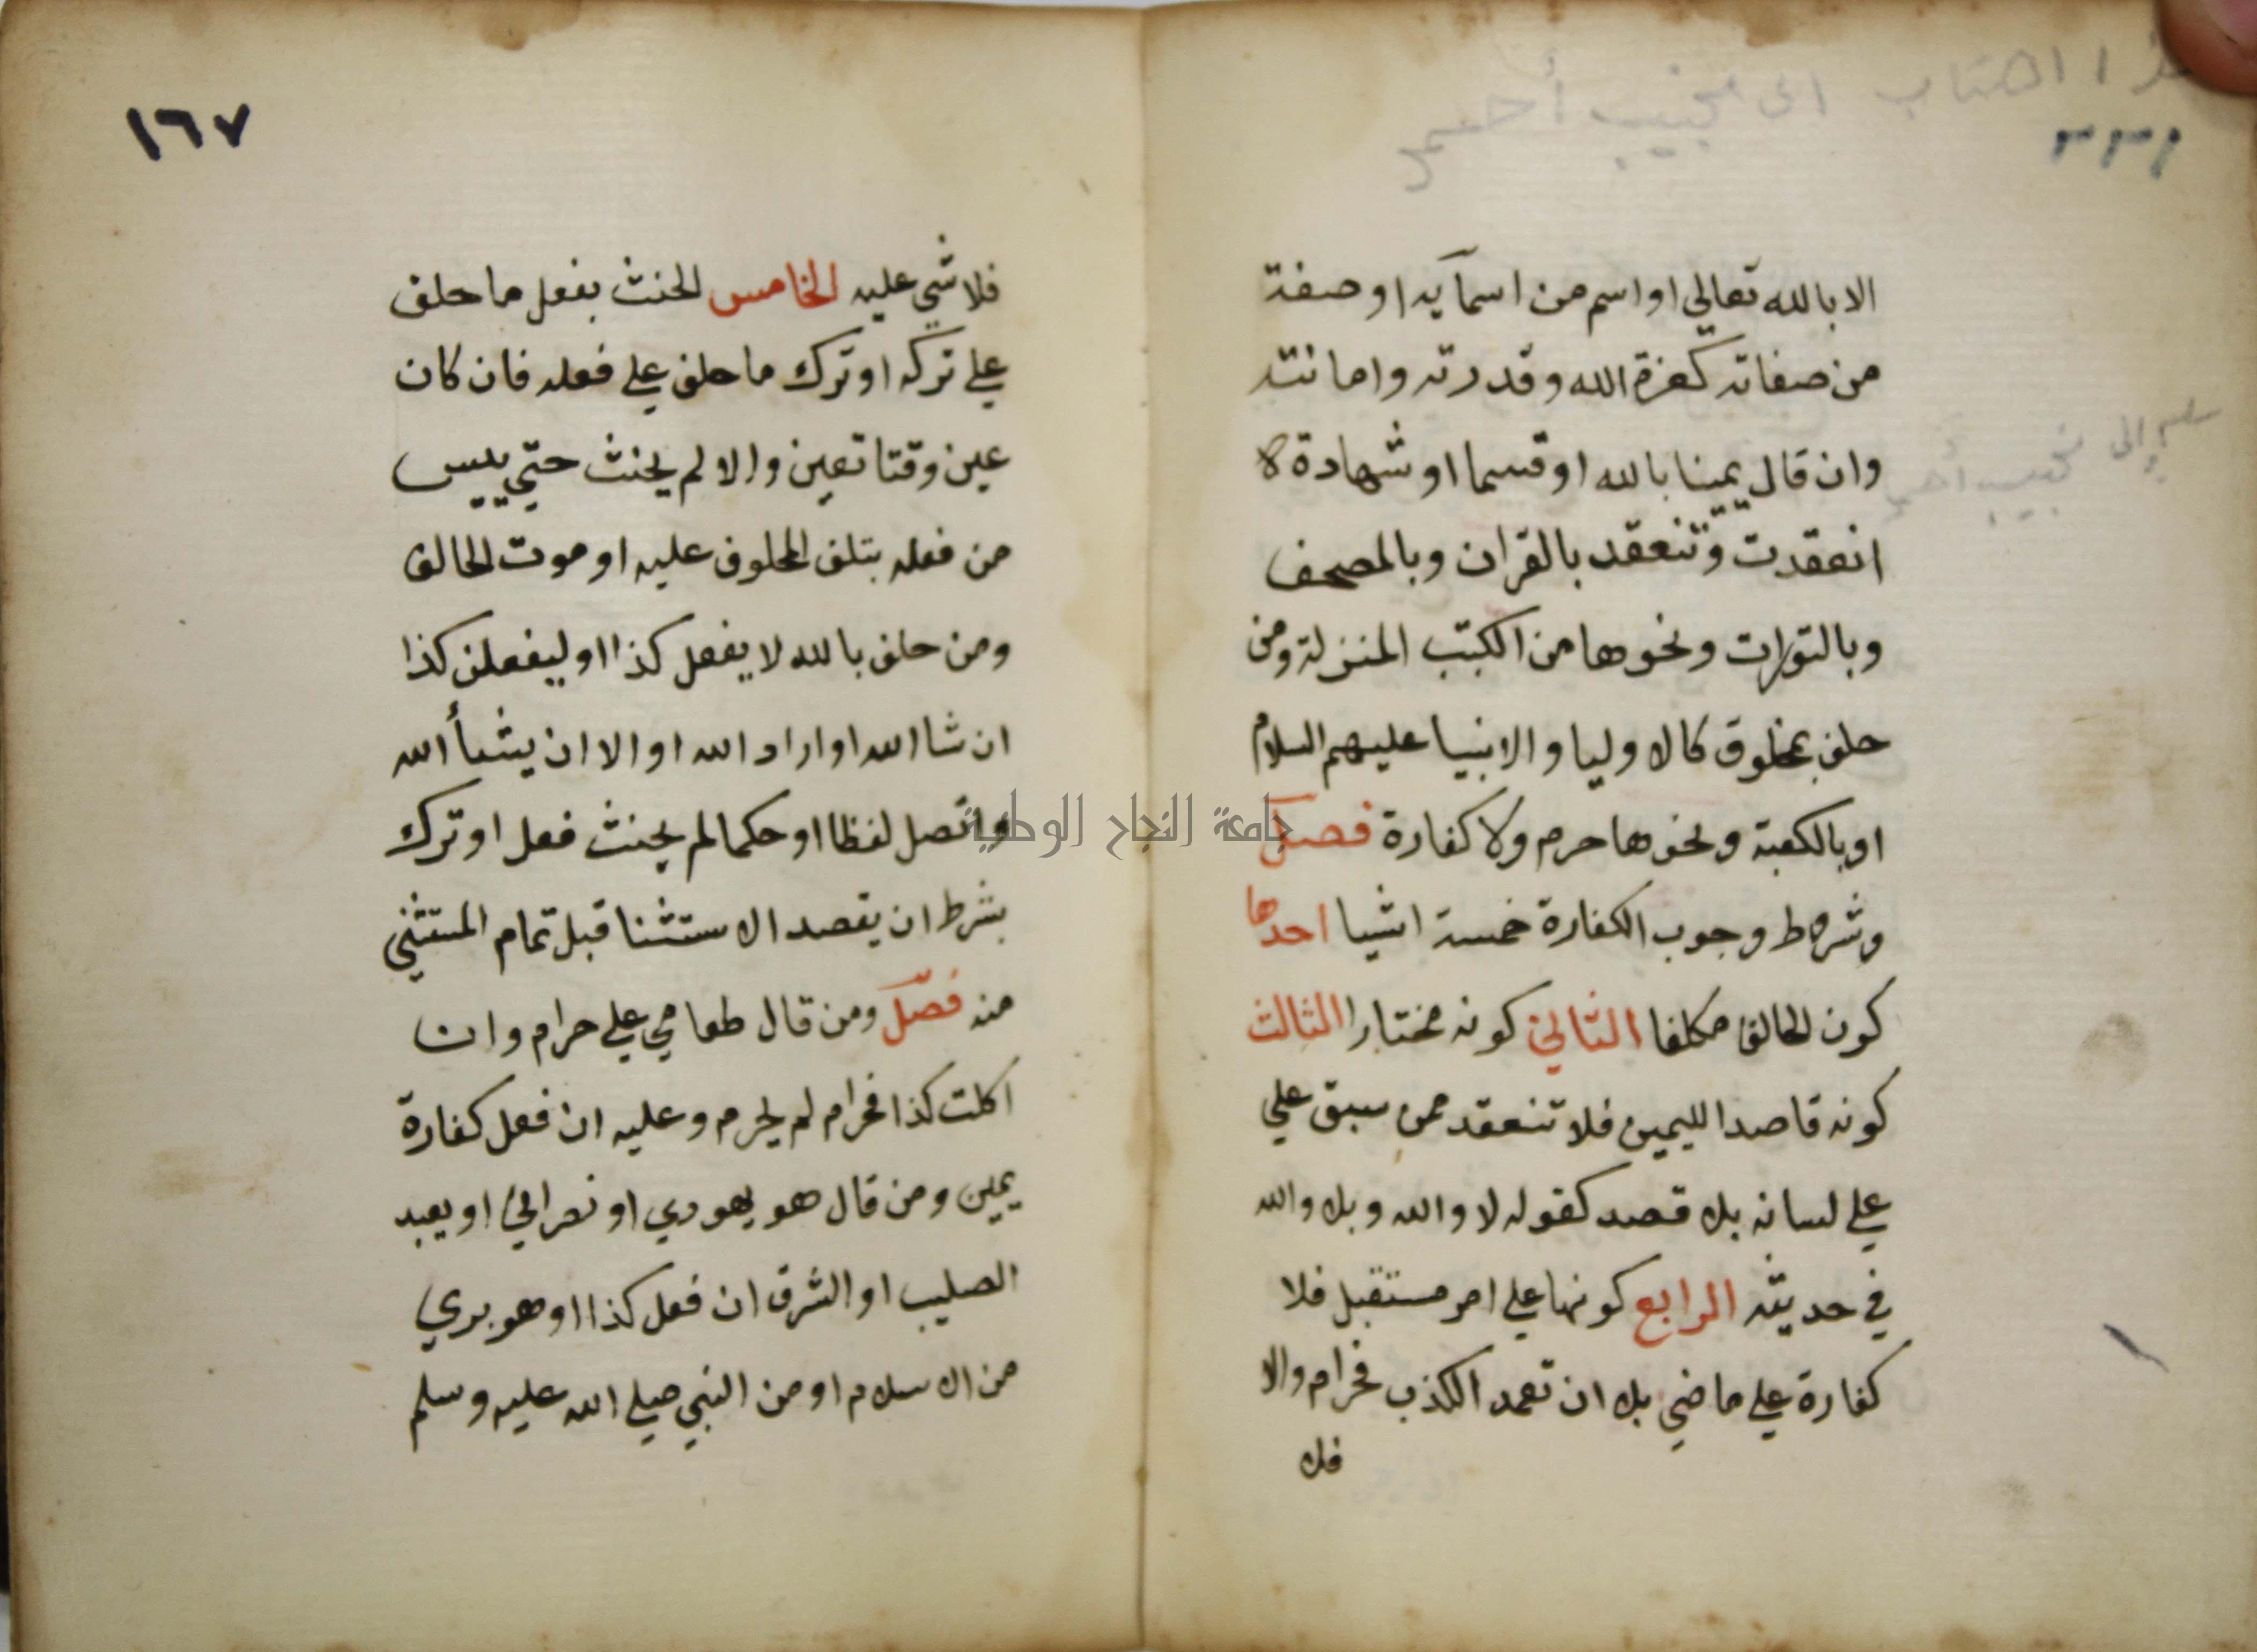 الى نجيب أحمد
الا بالله تعالي او اسم من اسمآيه او صفة
من صفاته كعزة الله وقدرته وامانته
وان قال يمينا بالله او قسما او شهادة
انعقدت وتنعقد بالقران وبالمصحف
وبالتورات ونحوها من الكتب المنزلة ومن
حلف بمخلوق كالاوليا والانبيا عليهم السلام
او بالكعبة ونحوها حرم ولا كفارة فصل
وشروط وجوب الكفارة خمسة اشيا احدها
كون الحالف مكلفا الثاني كونه مختارا الثالث
كونه قاصدا لليمين فلا تنعقد ممن سبق علي
علي لسانه بلا قصد كقوله لا والله وبلا والله
في حديثه الرابع كونها علي امر مستقبل فلا
كفارة علي ماضي بل ان تعمد الكذب فحرام والا
فلا
إلى نجيب أحمد
١٦٧
فلا شي عليه الخامس الحنث بفعل ما حلف
علي تركه او ترك ما حلف علي فعله فان كان
عين وقتا تعين والا لم يحنث حتي ييس
من فعله بتلف المحلوف عليه او موت الحالف
ومن حلف بالله لا يفعل كذا او ليفعلن كذا
ان شا الله او اراد الله او الا ان يشأ الله
واتصل لفظا او حكما لم يحنث فعل او ترك
بشرط ان يقصد الاستثنا قبل تمام المستثني
منه فصل ومن قال طعامي علي حرام وان
اكلت كذا فحرام لم يحرم وعليه ان فعل كفارة
يمين ومن قال هو يهودي او نصراني او يعبد
الصليب او الشرق ان فعل كذا او هو بري
من الاسلام او من النبي صلي الله عليه وسلم
جامعة النجاح الوطنية